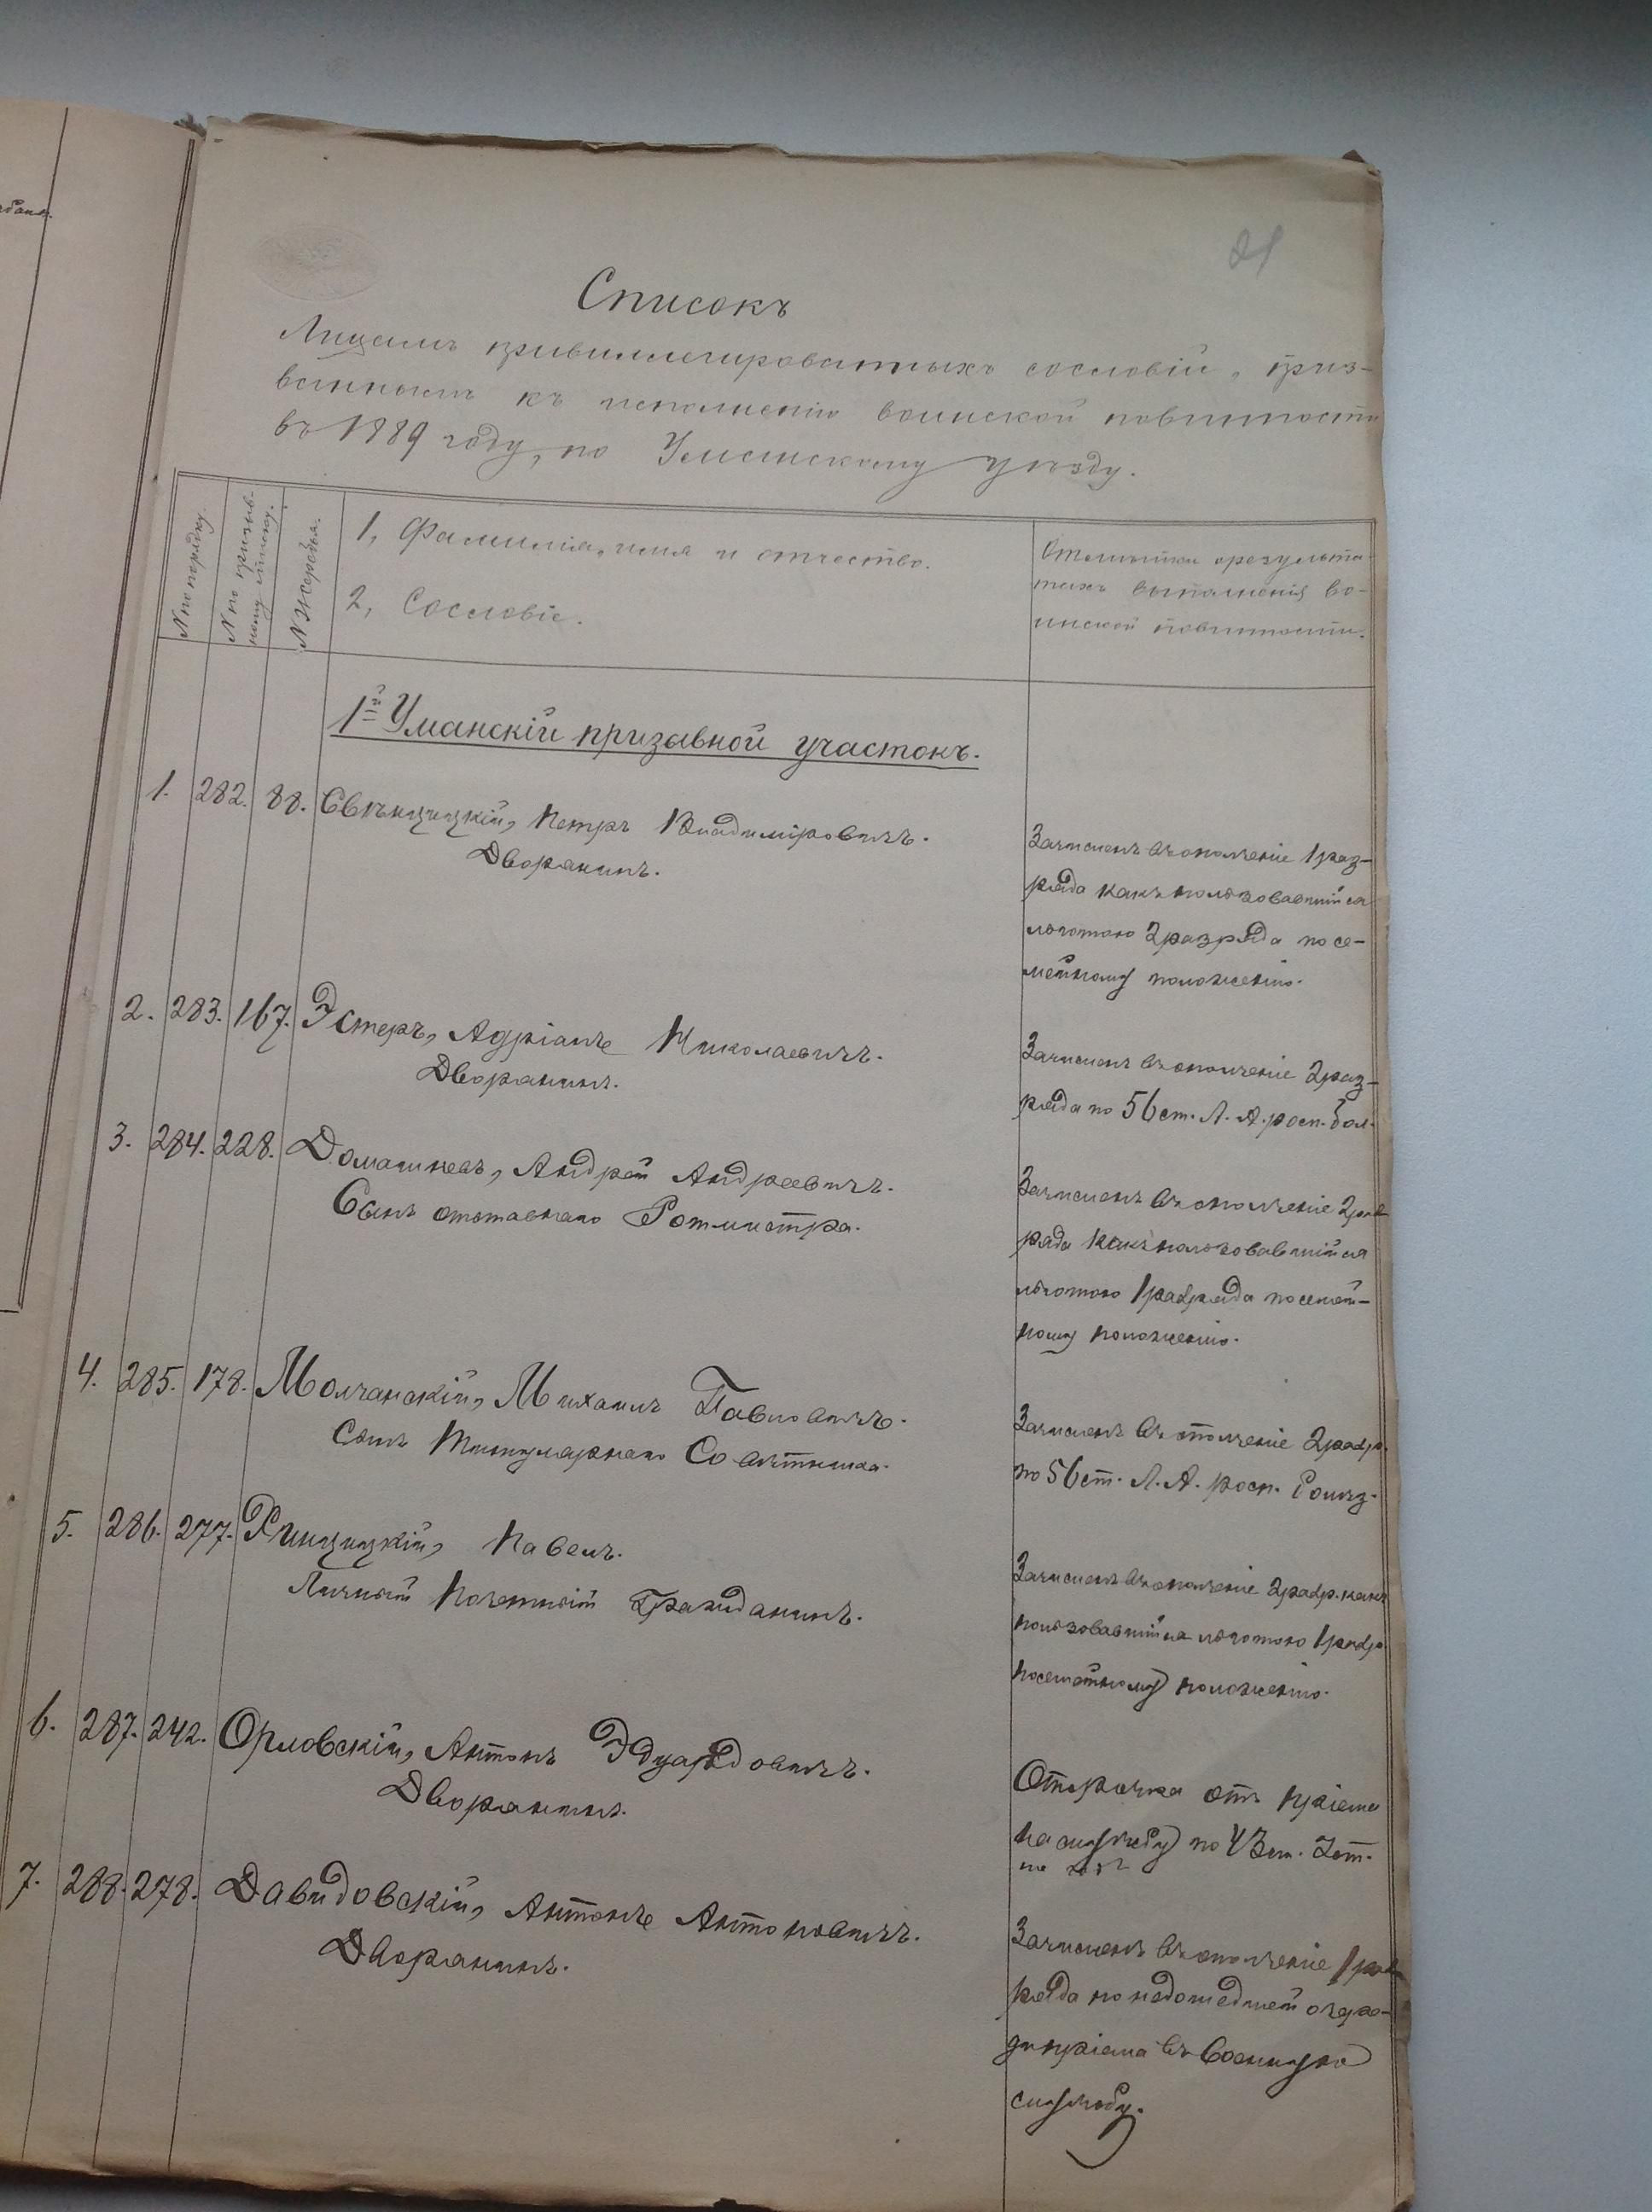 21
Списокъ
Лицамъ привиллегированныхъ сословій, приз-
ваннымъ къ исполненію воинской повинности
въ 1889 году, по Уманскому уѣзду.
№ по порядку.
№ по призыв-
ному списку.
№ Жеребья.
1, Фамилія, имя и отчество.
2, Сословіе.
Отмѣтки о результа-
тахъ выполненія во-
инской повинности.
1й Уманскій призывной участокъ.
1. 282. 88. Свѣнцицкій, Петръ Владиміровичъ.
Дворянинъ.
Зачисленъ въ ополченіе 1 раз-
ряда какъ пользовавшійся
льготою 2 разряда по се-
мейному положенію.
2. 283. 167. Эстеръ, Адріанъ Николаевичъ.
Дворянинъ.
Зачисленъ въ ополченіе 2 раз-
ряда по 56 ст. Л. А. росп. бол.
3. 284. 228. Домашневъ, Андрей Андреевичъ.
Сынъ отставнаго Ротмистра.
Зачисленъ въ ополченіе 2 раз
ряда какъ пользовавшійся
льготою 1 разряда по семей-
ному положенію.
4. 285. 178. Молчанскій, Михаилъ Павловичъ.
Сынъ Титулярнаго Совѣтника.
Зачисленъ въ ополченіе 2 разр.
по 56 ст. Л. А. росп. болѣз.
5. 286. 277. Хинцицкій, Павелъ.
Личный Почетный Гражданинъ.
Зачисленъ въ ополченіе 2 разр. какъ
пользовавшійся льготою 1 разр.
по семейному положенію.
6. 287. 242. Орловскій, Антонъ Эдуардовичъ.
Дворянинъ.
Отсрочка отъ пріема
на службу по 43 ст.
7. 288. 278. Давидовскій, Антонъ Антоновичъ.
Дворянинъ.
Зачисленъ въ ополченіе 1 раз
ряда по недошедшей очере-
ди пріема въ Военную
службу.